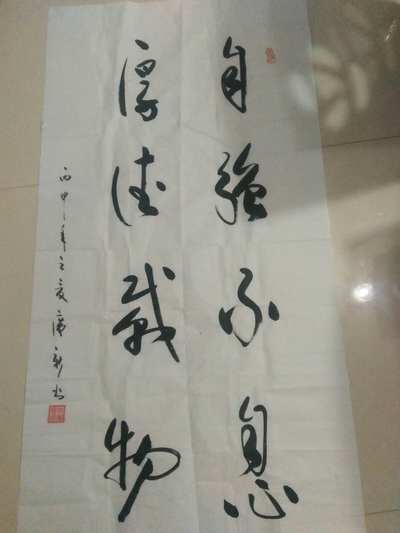 自强不息
厚德载物
丙申年之夏